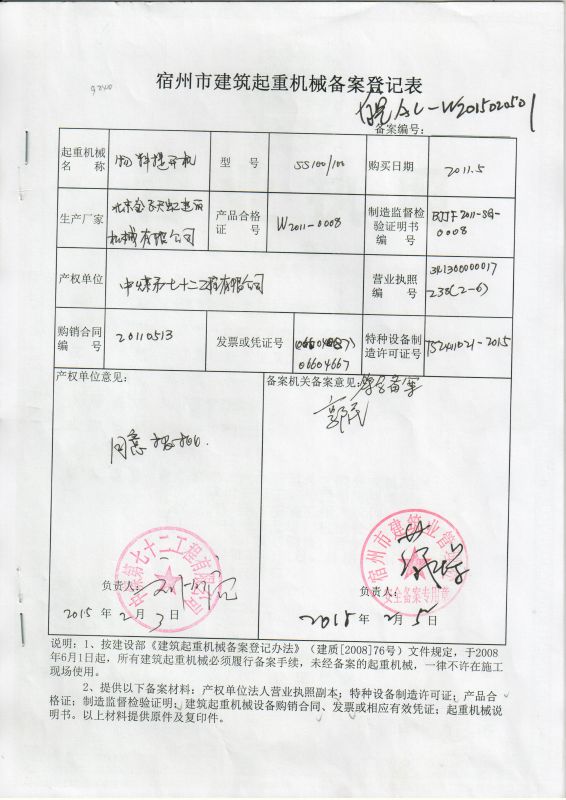 宿州市建筑起重机械备案登记表
皖AL-W2015020501
备案编号:
起重机械名称 物料提升机 型号 SS100/100 购买日期 2011.5
生产厂家 机械有限公司 产品合格证号 W2011-0008 制造监督检验证明书编号 BJJF2011-SQ-0008
产权单位 中煤第七十二工程有限公司 营业执照编号 341300000017238(2-6)
购销合同编号 20110513 发票或凭证号 06604667 特种设备制造许可证号 TS2411021-2015
产权单位意见:
同意
备案机关备案意见:
符合备案
郭民
中煤第七十二工程有限公司
宿州市建筑业管
安全备案专用章
负责人:
2015 年 2 月 3 日
2015 年 2 月 5 日
说明:1、按建设部《建筑起重机械备案登记办法》(建质[2008]76号)文件规定,于2008
年6月1日起,所有建筑起重机械必须履行备案手续,未经备案的起重机械,一律不许在施工
现场使用。
2、提供以下备案材料:产权单位法人营业执照副本;特种设备制造许可证;产品合
格证;制造监督检验证明;建筑起重机械设备购销合同、发票或相应有效凭证;起重机械说
明书。以上材料提供原件及复印件。